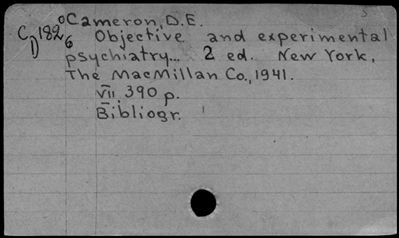 Cameron, D.E.
C 182 Objective and experimental
D 6
psychiatry... 2 ed. New York,
The MacMillan Co., 1941.
VII, 390 p.
Bibliogr.